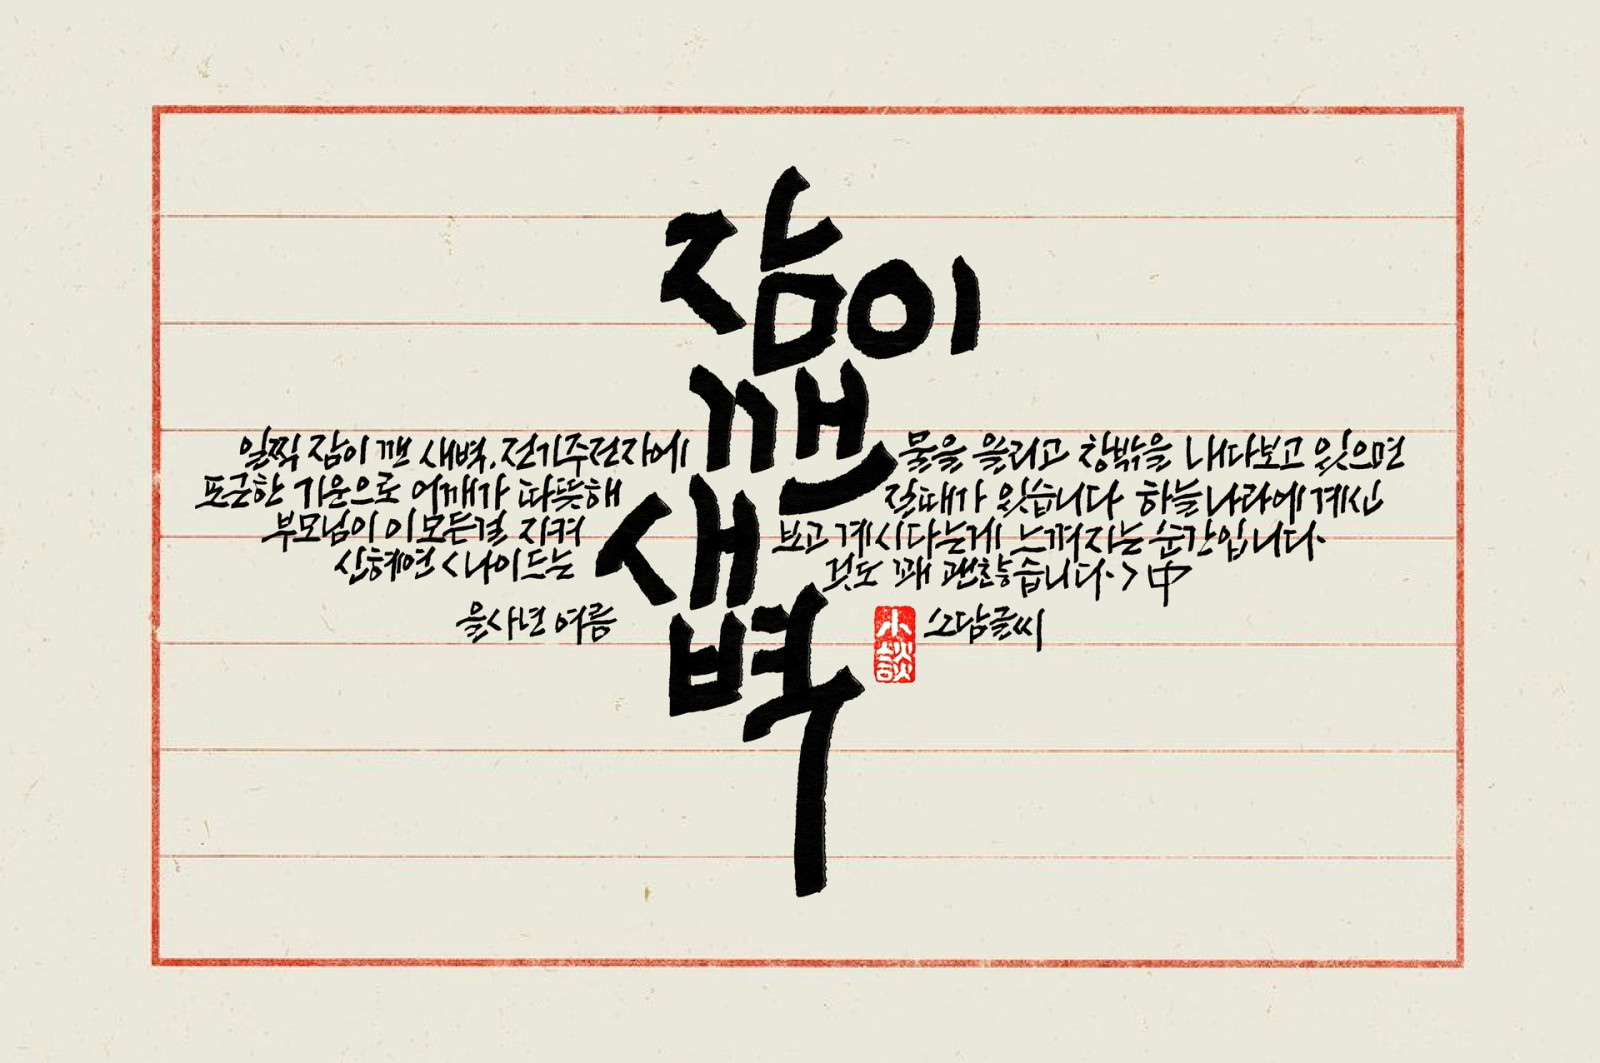 잠이
깬
새벽
일찍 잠이 깬 새벽, 전기주전자에 물을 올리고 창밖을 내다보고 있으면
포근한 기운으로 어깨가 따뜻해 질때가 있습니다 하늘나라에 계신
부모님이 이 모든걸 지켜 보고 계시다는게 느껴지는 순간입니다.
신혜연 <나이드는 것도 꽤 괜찮습니다.> 中
을사년 여름 小談 소담글씨